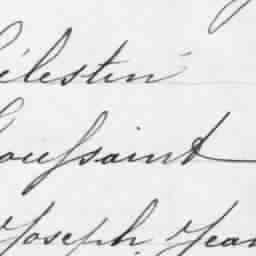 Célestin
Toussaint
Joseph Jean